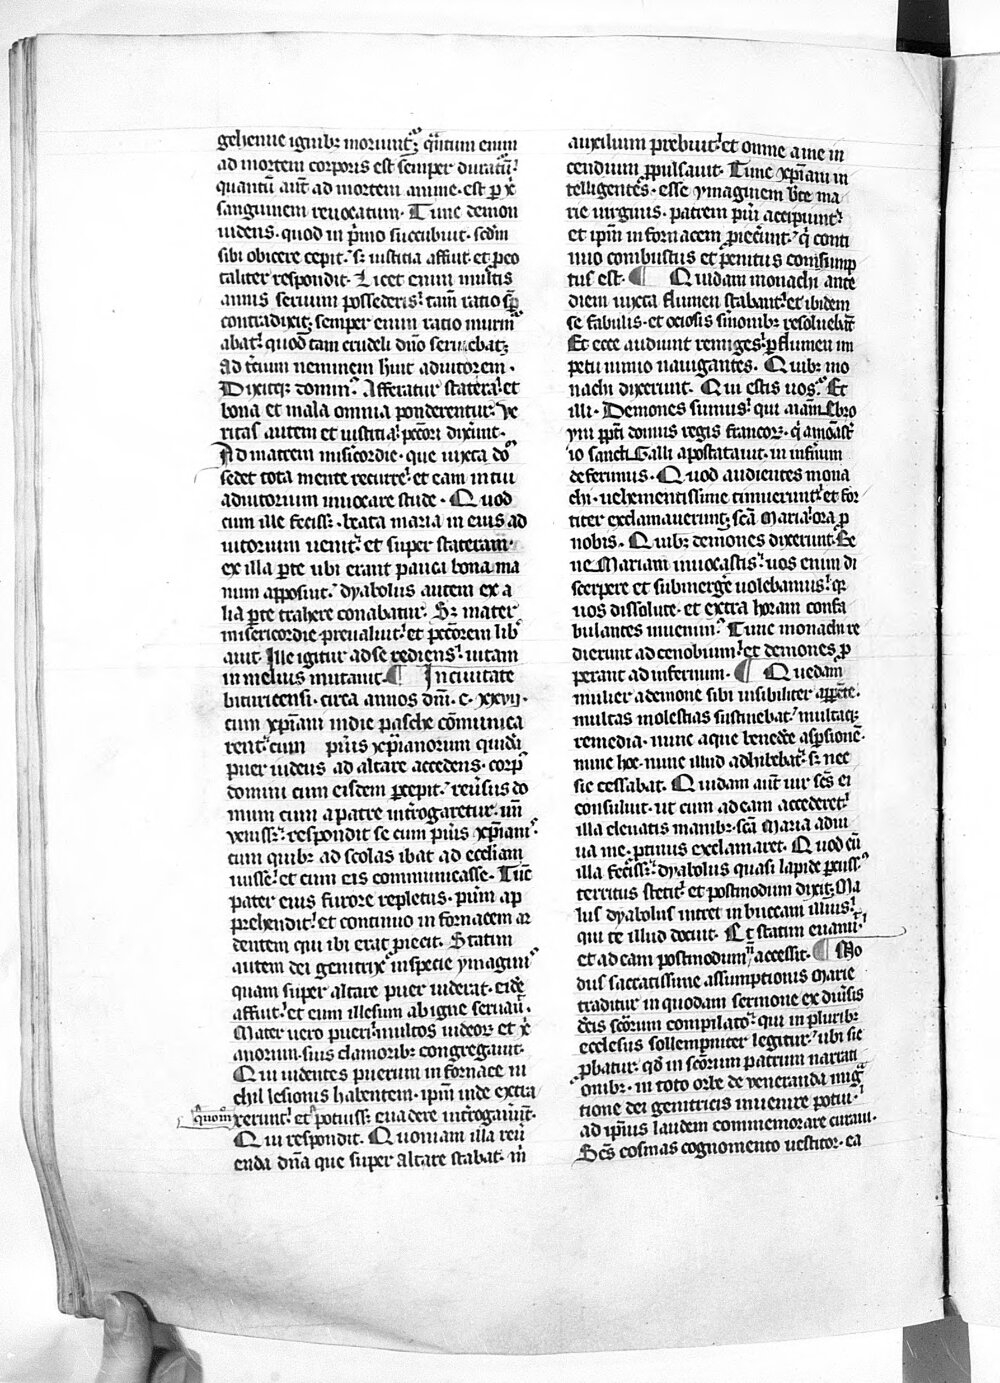 gehenne ignibꝫ moriunt᷑. q̃ntum enim
ad mortem corporis est semper duratũ.
quantũ aũt ad mortem anime. est p xp̃i
sanguinem reuocatum. Tunc demon
uidens. quod in p̃mo succubuit. sc̃dm
sibi obicere cepit. sꝫ iusticia affuit. et p̃co
taliter respondit. Licet enim multis
annis seruum possederis. tam̃ ratio sp̃
contradixit. semper enim ratio murm̃
abat. quod tam crudeli dño seruiebat.
Ad t̃cium neminem h̃uit adiutorem.
Dixitqꝫ dominꝰ. Afferatur statera. et
bona et mala omnia ponderentur. Ve
ritas autem et iusticia. pecc̃ori dixũnt.
Ad matrem mis̃icordie. que iuxta dom̃
sedet tota mente recurre. et eam in tui
adiutorium inuocare stude. Quod
cum ille feciss̃. beata maria in eius ad
iutorium uenit. et super stateram.
ex illa ꝑte ubi erant pauca bona ma
num apposuit. dyabolus autem ex a
lia ꝑte trahere conabatur. Sꝫ mater
misericordie preualuit. et pecc̃orem lib̃
auit. Ille igitur ad se rediens. uitam
in melius mutauit. ¶ In ciuitate
bituricensi. circa annos dñi. c. xxvii.
cum xp̃iani in die pasche cõmunica
rent. cum pũis xp̃ianorum quidã
puer iudeus ad altare accedens. corpꝰ
domini cum eisdem ꝑcepit. reũsus do
mum cum a patre int̃rogaretur. uñ
veniss̃. respondit se cum pũis xp̃ianis.
cum quibꝫ ad scolas ibat ad ecc̃liam
iuisse. et cum eis communicasse. Tũc
pater eius furore repletus. pũum ap
prehendit. et continuo in fornacem ar
dentem que ibi erat p̃iecit. Statim
autem dei genitrix in specie ymaginis
quam super altare puer uiderat. eidẽ
affuit. et eum illesum ab igne seruauit.
Mater uero pueri. multos iudeoꝝ et xp̃i
anorum. suis clamoribꝫ congregauit.
Qui uidentes puerum in fornace ni
chil lesionis habentem. ip̃m inde extra
xerunt. et potuiss̃ euadere int̃rogauũt.
quom̃
Qui respondit. Quoniam illa reũ
enda dña que super altare stabat. m̃
auxilium prebuit. et omne a me in
cendium ꝓpulsauit. Tunc xp̃iani in
telligentes. esse ymaginem bt̃e ma
rie uirginis. patrem pũi accipiunt.
et ip̃m in fornacem ꝓiecẽunt. qͥ conti
nuo combustus et penitus consump
tus est. ¶ Quidam monachi ante
diem iuxta flumen stabant. et ibidem
se fabulis. et ociosis s̃monibꝫ resoluebãt
Et ecce audiunt remiges. ꝑ flumen im
petu nimio nauigantes. Quibꝫ mo
nachi dixerunt. Qui estis uos. Et
illi. Demones sumus. qui aĩam Ebro
yni p̃pti domus regis francoꝝ. qͥ a mõast̃
io sancti Galli apostatauit. in infernũ
deferimus. Quod audientes mona
chi. uehementissime timuerunt. et for
titer exclamauerunt. sc̃a Maria. ora p
nobis. Quibꝫ demones dixerunt. Be
ne Mariam inuocastis. uos enim di
scerpere et submerge᷑ uolebamus. qꝛ
uos dissolute. et extra horam confa
bulantes inuenimꝰ. Tunc monachi re
dierunt ad cenobium. et demones p
perant ad infernum. ¶ Quedam
mulier a demone sibi uisibiliter app̃ẽte.
multas molestias sustinebat. multaqꝫ
remedia. nunc aque benedc̃e asp̃sionẽ.
nunc hoc. nunc illud adhibebat. sꝫ nec
sic cessabat. Quidam aũt uir sc̃s ei
consuluit. ut cum ad eam accederet.
illa eleuatis manibꝫ. sc̃a Maria adiu
ua me. ꝓtinus exclamaret. Quod cũ
illa feciss̃. dyabolus quasi lapide ꝑcussꝰ
territus stetit. et postmodum dixit. Ma
lus dyabolus intret in buccam illius.
qui te illud docuit. Et statim euanuit.
et ad eam postmodum ñ accessit. ¶ Mo
dus sacratissime assumptionis Marie
traditur in quodam sermone ex diũsis
dc̃is sc̃orum compilato. qui in pluribꝫ
ecclesiis sollempniter legitur. ubi sic
ꝓbatur. qd̃ in sc̃orum patrum narrati
onibꝫ. in toto orbe de ueneranda mig̃
tione dei genitricis inuenire potui.
ad ip̃ius laudem commemorare curaui.
Sc̃s cosmas cognomento uestitor. ea